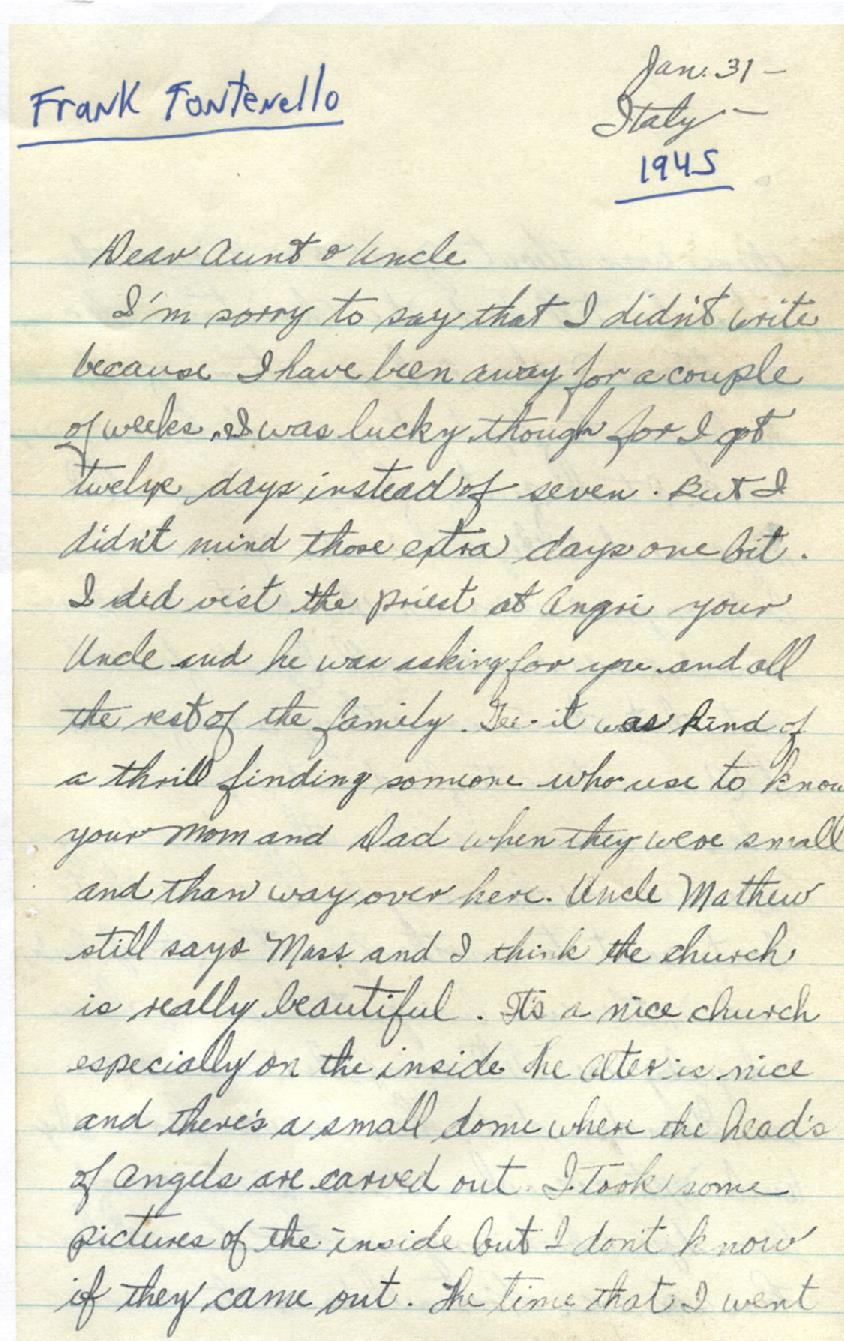 Frank Fontenello
Jan. 31 -
Italy -
1945
Dear Aunt & Uncle
I'm sorry to say that I didn't write
because I have been away for a couple
of weeks. I was lucky though for I got
twelve days instead of seven. But I
didn't mind those extra days one bit.
I did vist the priest at Angri your
Uncle and he was asking for you and all
the rest of the family. Gee it was kind of
a thrill finding someone who use to know
your Mom and Dad when they were small
and than way over here. Uncle Mathew
still says Mass and I think the church
is really beautiful. It's a nice church
especially on the inside the alter is nice
and there's a small dome where the head's
of angels are carved out. I took some
pictures of the inside but I don't know
if they came out. The time that I went